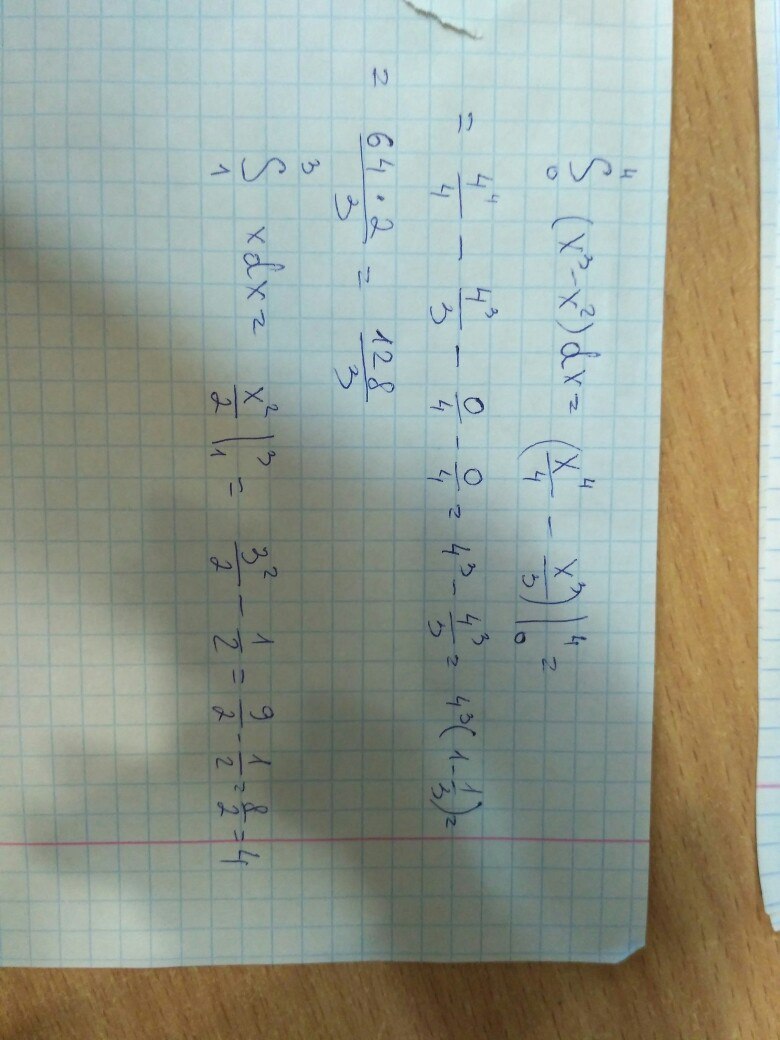 ∫₀⁴ (x³-x²)dx = (x⁴/4 - x³/3)|₀⁴ =
= 4⁴/4 - 4³/3 - 0/4 - 0/4 = 4³ - 4³/3 = 4³(1-1/3) =
= 64·2/3 = 128/3
∫₁³ xdx = x²/2 |₁³ = 3²/2 - 1/2 = 9/2 - 1/2 = 8/2 = 4